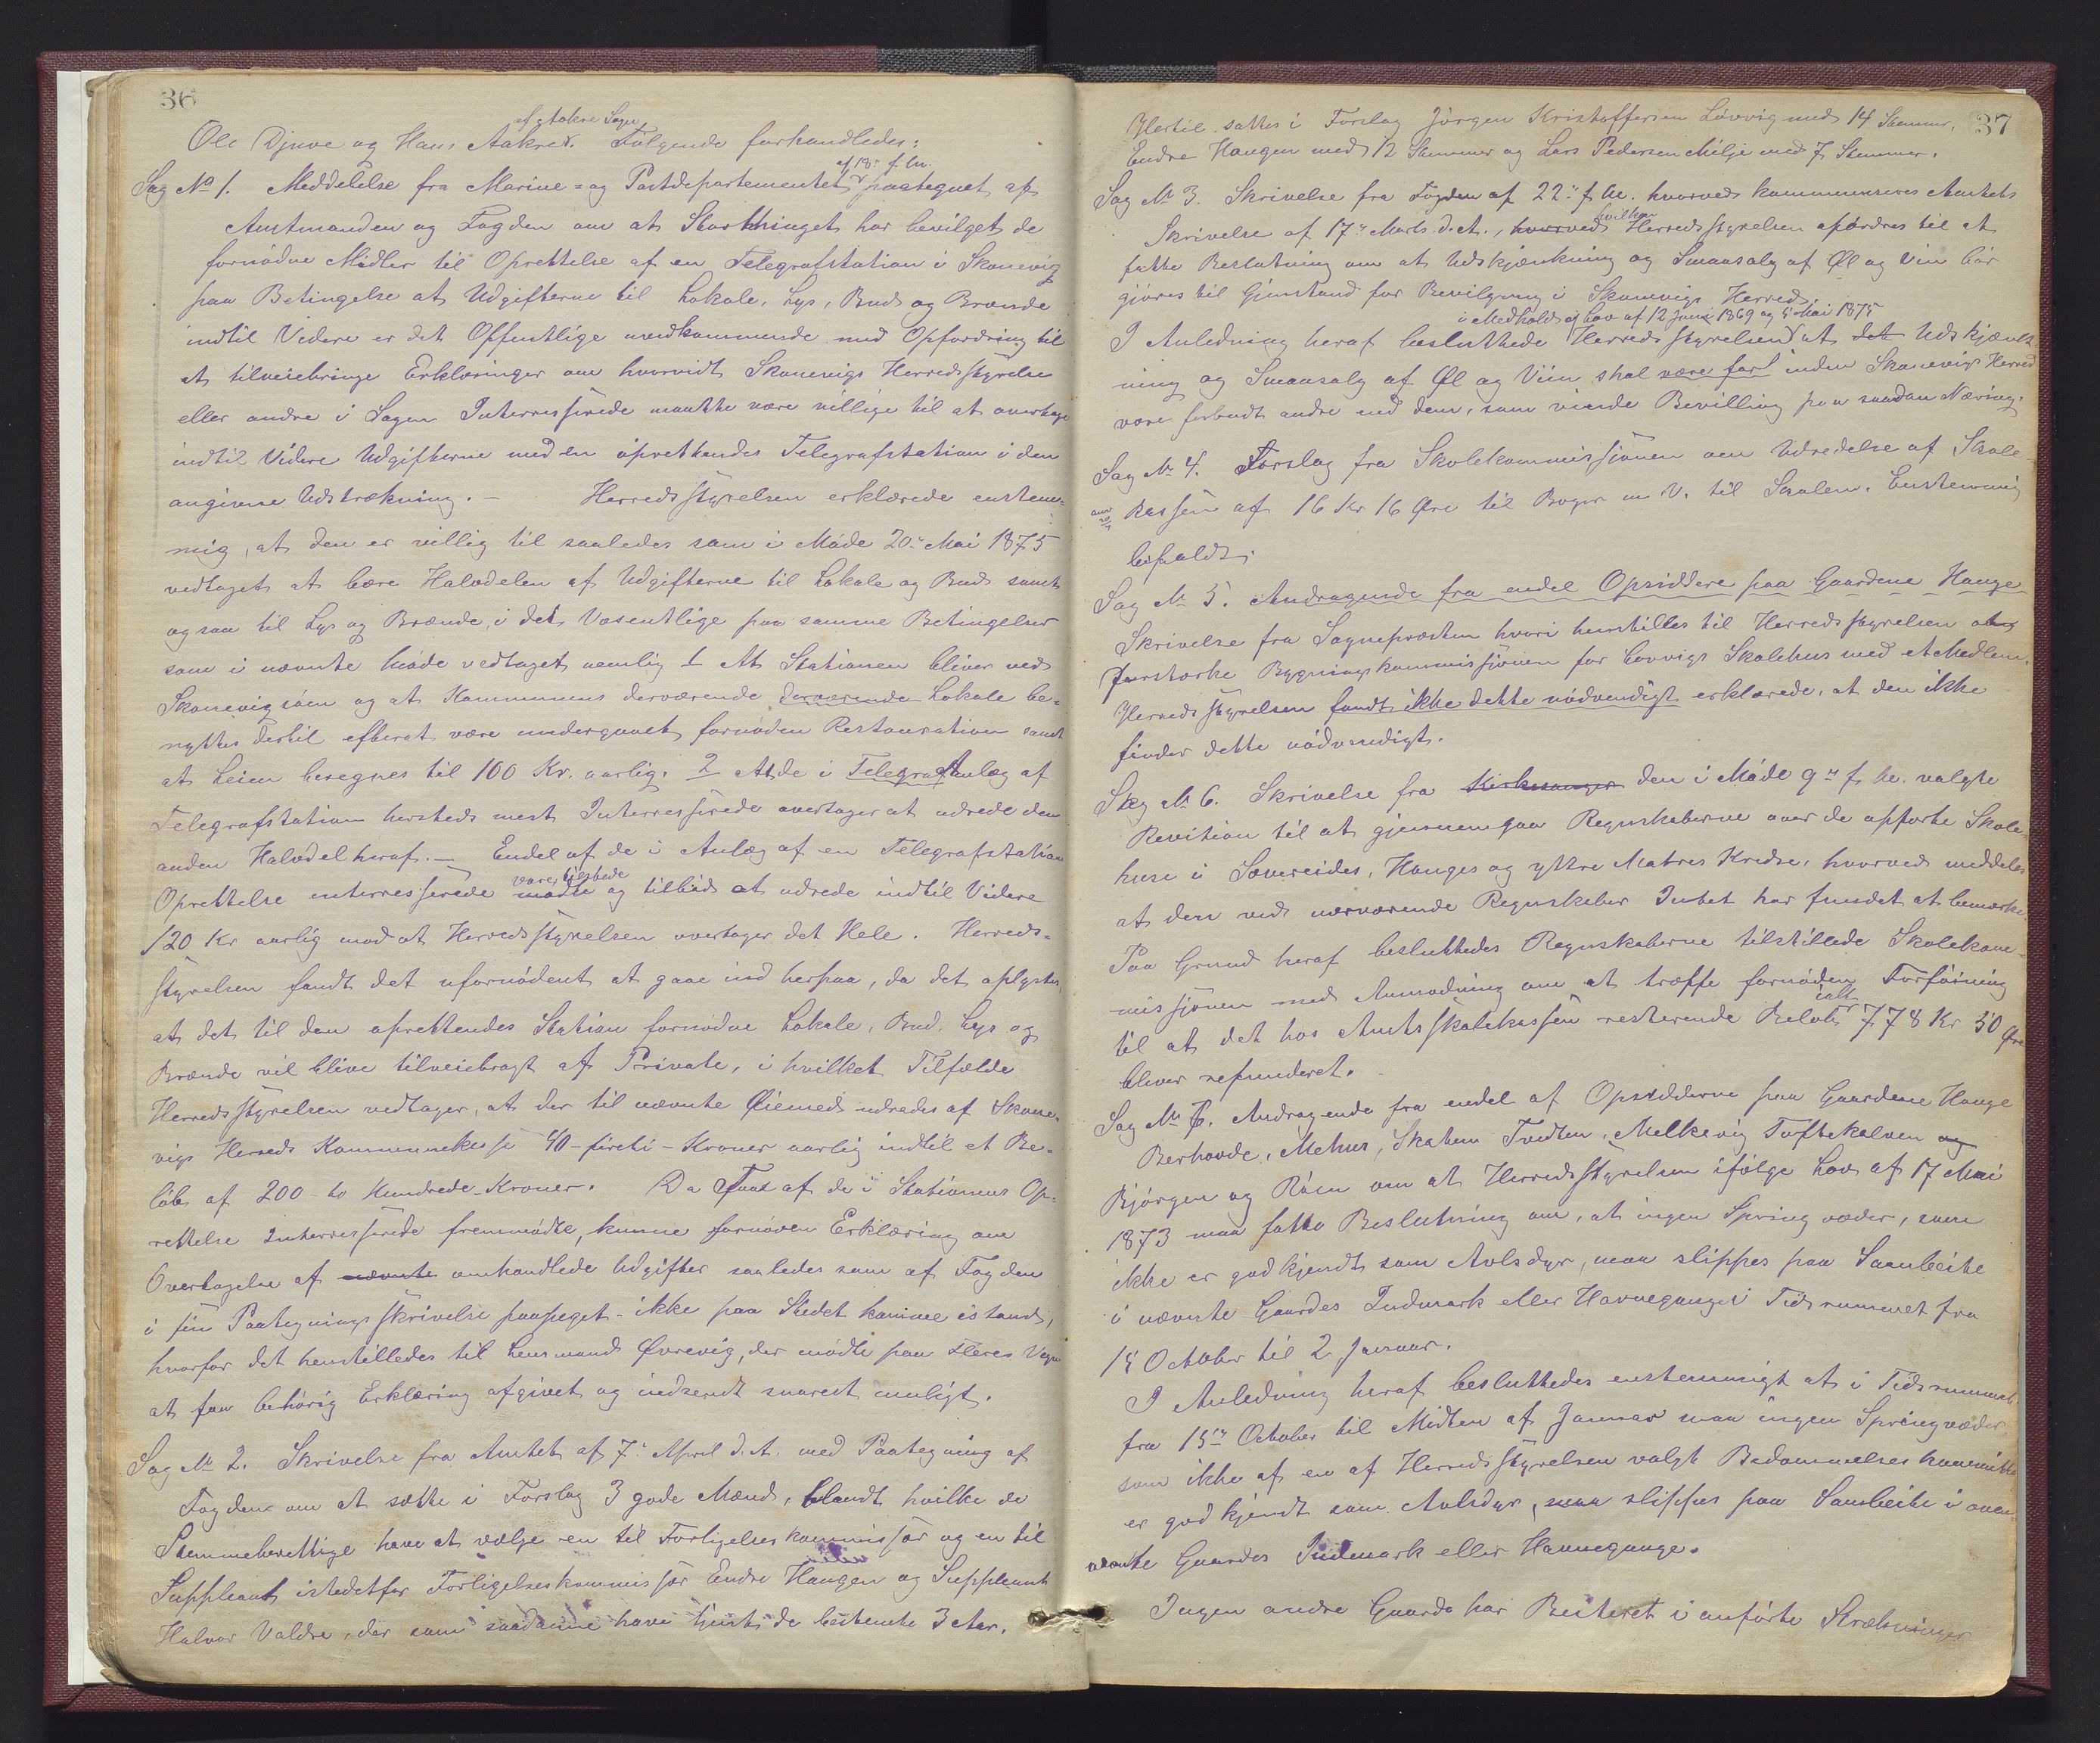 36
af Aakre Sogn
Ole Djuve og Hans Aakre. Følgende forhandledes:
af 18. f. M.
Sag No 1. Meddelelse fra Marine- og Postdepartementet paategnet af
Amtmanden og Fogden om at Storthinget har bevilget de
fornødne Midler til Oprettelse af en Telegrafstation i Skonevig
paa Betingelse at Udgifterne til Lokale, Lys, Bud og Brænde
indtil Videre er det Offentlige uvedkommende med Opfordring til
at tilveiebringe Erklæringer om hvorvidt Skonevigs Herredsstyrelse
eller andre i Sagen Interresserede maatte være villige til at overtage
indtil Videre Udgifterne med en oprettendes Telegrafstation i den
angivne Udstrækning. – Herredsstyrelsen erklærede enstem-
mig, at den er villig til saaledes som i Møde 20de Mai 1875
vedtaget at bære Halvdelen af Udgifterne til Lokale og Bud samt
ogsaa til Lys og Brænde, i det Væsentlige paa samme Betingelser
som i nævnte Møde vedtaget nemlig 1 At Stationen bliver ved
Skonevigsøen og at Kommunens derværende derværende Lokale be-
nyttes dertil efterat være undergaaet fornøden Restauration samt
at Leien beregnes til 100 Kr. aarlig. 2 At de i Telegrafanlæg af
Telegrafstation hersteds mest Interresserede overtager at udrede den
anden Halvdel heraf. – Endel af de i Anlæg af en Telegrafstation
være tilstede
Oprettelse interresserede mødte og tilbød at udrede indtil Videre
120 Kr aarlig mod at Herredsstyrelsen overtager det Hele. Herreds-
styrelsen fandt det ufornødent at gaae ind herpaa, da det oplystes,
at det til den oprettendes Station fornødne Lokale, Bud, Lys og
Brænde vil blive tilveiebragt af Private, i hvilket Tilfælde
Herredsstyrelsen vedtager, at der til nævnte Øiemed udredes af Skone-
vigs Herreds Kommunekasse 40 - fireti - Kroner aarlig indtil et Be-
løb af 200 - to Hundrede Kroner. Da Faae af de i Stationens Op-
rettelse Interresserede fremmødte, kunne fornøden Erklæring om
Overtagelse af nævnte omhandlede Udgifter saaledes som af Fogden
i sin Paategningsskrivelse paapeget - ikke paa Stedet komme istand,
hvorfor det henstilledes til Lensmand Øvrevig, der mødte paa Fleres Vegne
at faa behørig Erklæring afgivet og indsendt snarest muligt.
Sag No 2. Skrivelse fra Amtet af 7de April d. A. med Paategning af
Fogden om at sætte i Forslag 3 gode Mænd, blandt hvilke de
Stemmeberettige have at vælge en til Forligelseskommissær og en til
Suppleant istedetfor Forligelseskommissær Endre Haugen og Suppleant
Halvor Valdre, der som saadanne have tjent de bestemte 3 Aar.
37
Hertil sattes i Forslag Jørgen Kristoffersen Løvvig med 14 Stemmer,
Endre Haugen med 12 Stemmer og Lars Pedersen Milje med 7 Stemmer.
Sag No 3. Skrivelse fra Fogden af 22de f. M. hvorved kommuniseres Amtets
hvilken
Skrivelse af 17de Marts d. A., hvorved Herredsstyrelsen opfordres til at
fatte Beslutning om at Udskjænkning og Smaasalg af Øl og Vin bør
gjøres til Gjenstand for Bevilgning i Skonevigs Herred.
i Medhold af Lov af 12 Juni 1869 og 5 Mai 1875
I Anledning heraf besluttede Herredsstyrelsen at det Udskjænk-
ning og Smaasalg af Øl og Viin skal være forb inden Skonevigs Herred
være forbudt andre end dem, som vinde Bevilling paa saadan Næring.
Sag No 4. Forslag fra Skolekommissjonen om Udredelse af Skole-
kassen af 16 Kr 16 Øre til Bøger m V. til Skolen. Enstemmig
bifaldt.
Sag No 5. Andragende fra endel Opsiddere paa Gaardene Hauge
Skrivelse fra Sognepræsten hvori henstilles til Herredsstyrelsen at
forstærke Bygningskommissjonen for Løvvigs Skolehus med et Medlem.
Herredsstyrelsen fandt ikke dette nødvendigt erklærede, at den ikke
finder dette nødvendigt.
Sag No 6. Skrivelse fra Kirkesanger den i Møde 9de f. M. valgte
Revition til at gjennemgaa Regnskaberne over de opførte Skole-
huse i Sævereides, Hauges og ytre Matres Kredse, hvorved meddeles
at den ved nærværende Regnskaber Intet har fundet at bemærke
Paa Grund heraf besluttedes Regnskaberne tilstillede Skolekom-
missjonen med Anmodning om at træffe fornøden Forføining
ialt
til at det hos Amtsskolekassen resterende Beløb 778 Kr 50 Øre
bliver refunderet.
Sag No 7. Andragende fra endel af Opsidderne paa Gaardene Hauge
Berhovde, Mehus, Skatum Tvedten, Melkevig Toftekalven og
Bjørgen og Røen om at Herredsstyrelsen ifølge Lov af 17 Mai
1873 maa fatte Beslutning om, at ingen Springvæder, som
ikke er godkjendt som Avlsdyr, maa slippes paa Sambeite
i nævnte Gaardes Indmark eller Havnegange i Tidsrummet fra
15 October til 2 Januar.
I Anledning heraf besluttedes enstemmigt at i Tidsrummet
fra 15de October til Midten af Januar maa ingen Springvæder
som ikke af en af Herredsstyrelsen valgt Bedømmelseskommitte
er godkjendt som Avlsdyr, maa slippes paa Sambeite i oven-
nævnte Gaardes Indmark eller Havnegange.
Ingen andre Gaarde har Beiteret i anførte Strækninger